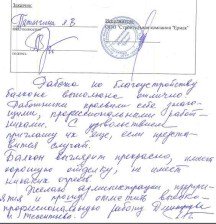 Заказчик
Исполнитель
Работа по благоустройству
балкона выполнена, отлично
Работники проявили себе знаю-
щими, профессиональными работ-
никами. С удовольствием
приглашу их еще, если предста-
вится случай.
Балкон выглядит прекрасно, имеет
хорошую отделку, не имеет
никаких огрехов.
Желаю администрации, процве-
тания и прошу отметить высоко-
профессиональную работу
и